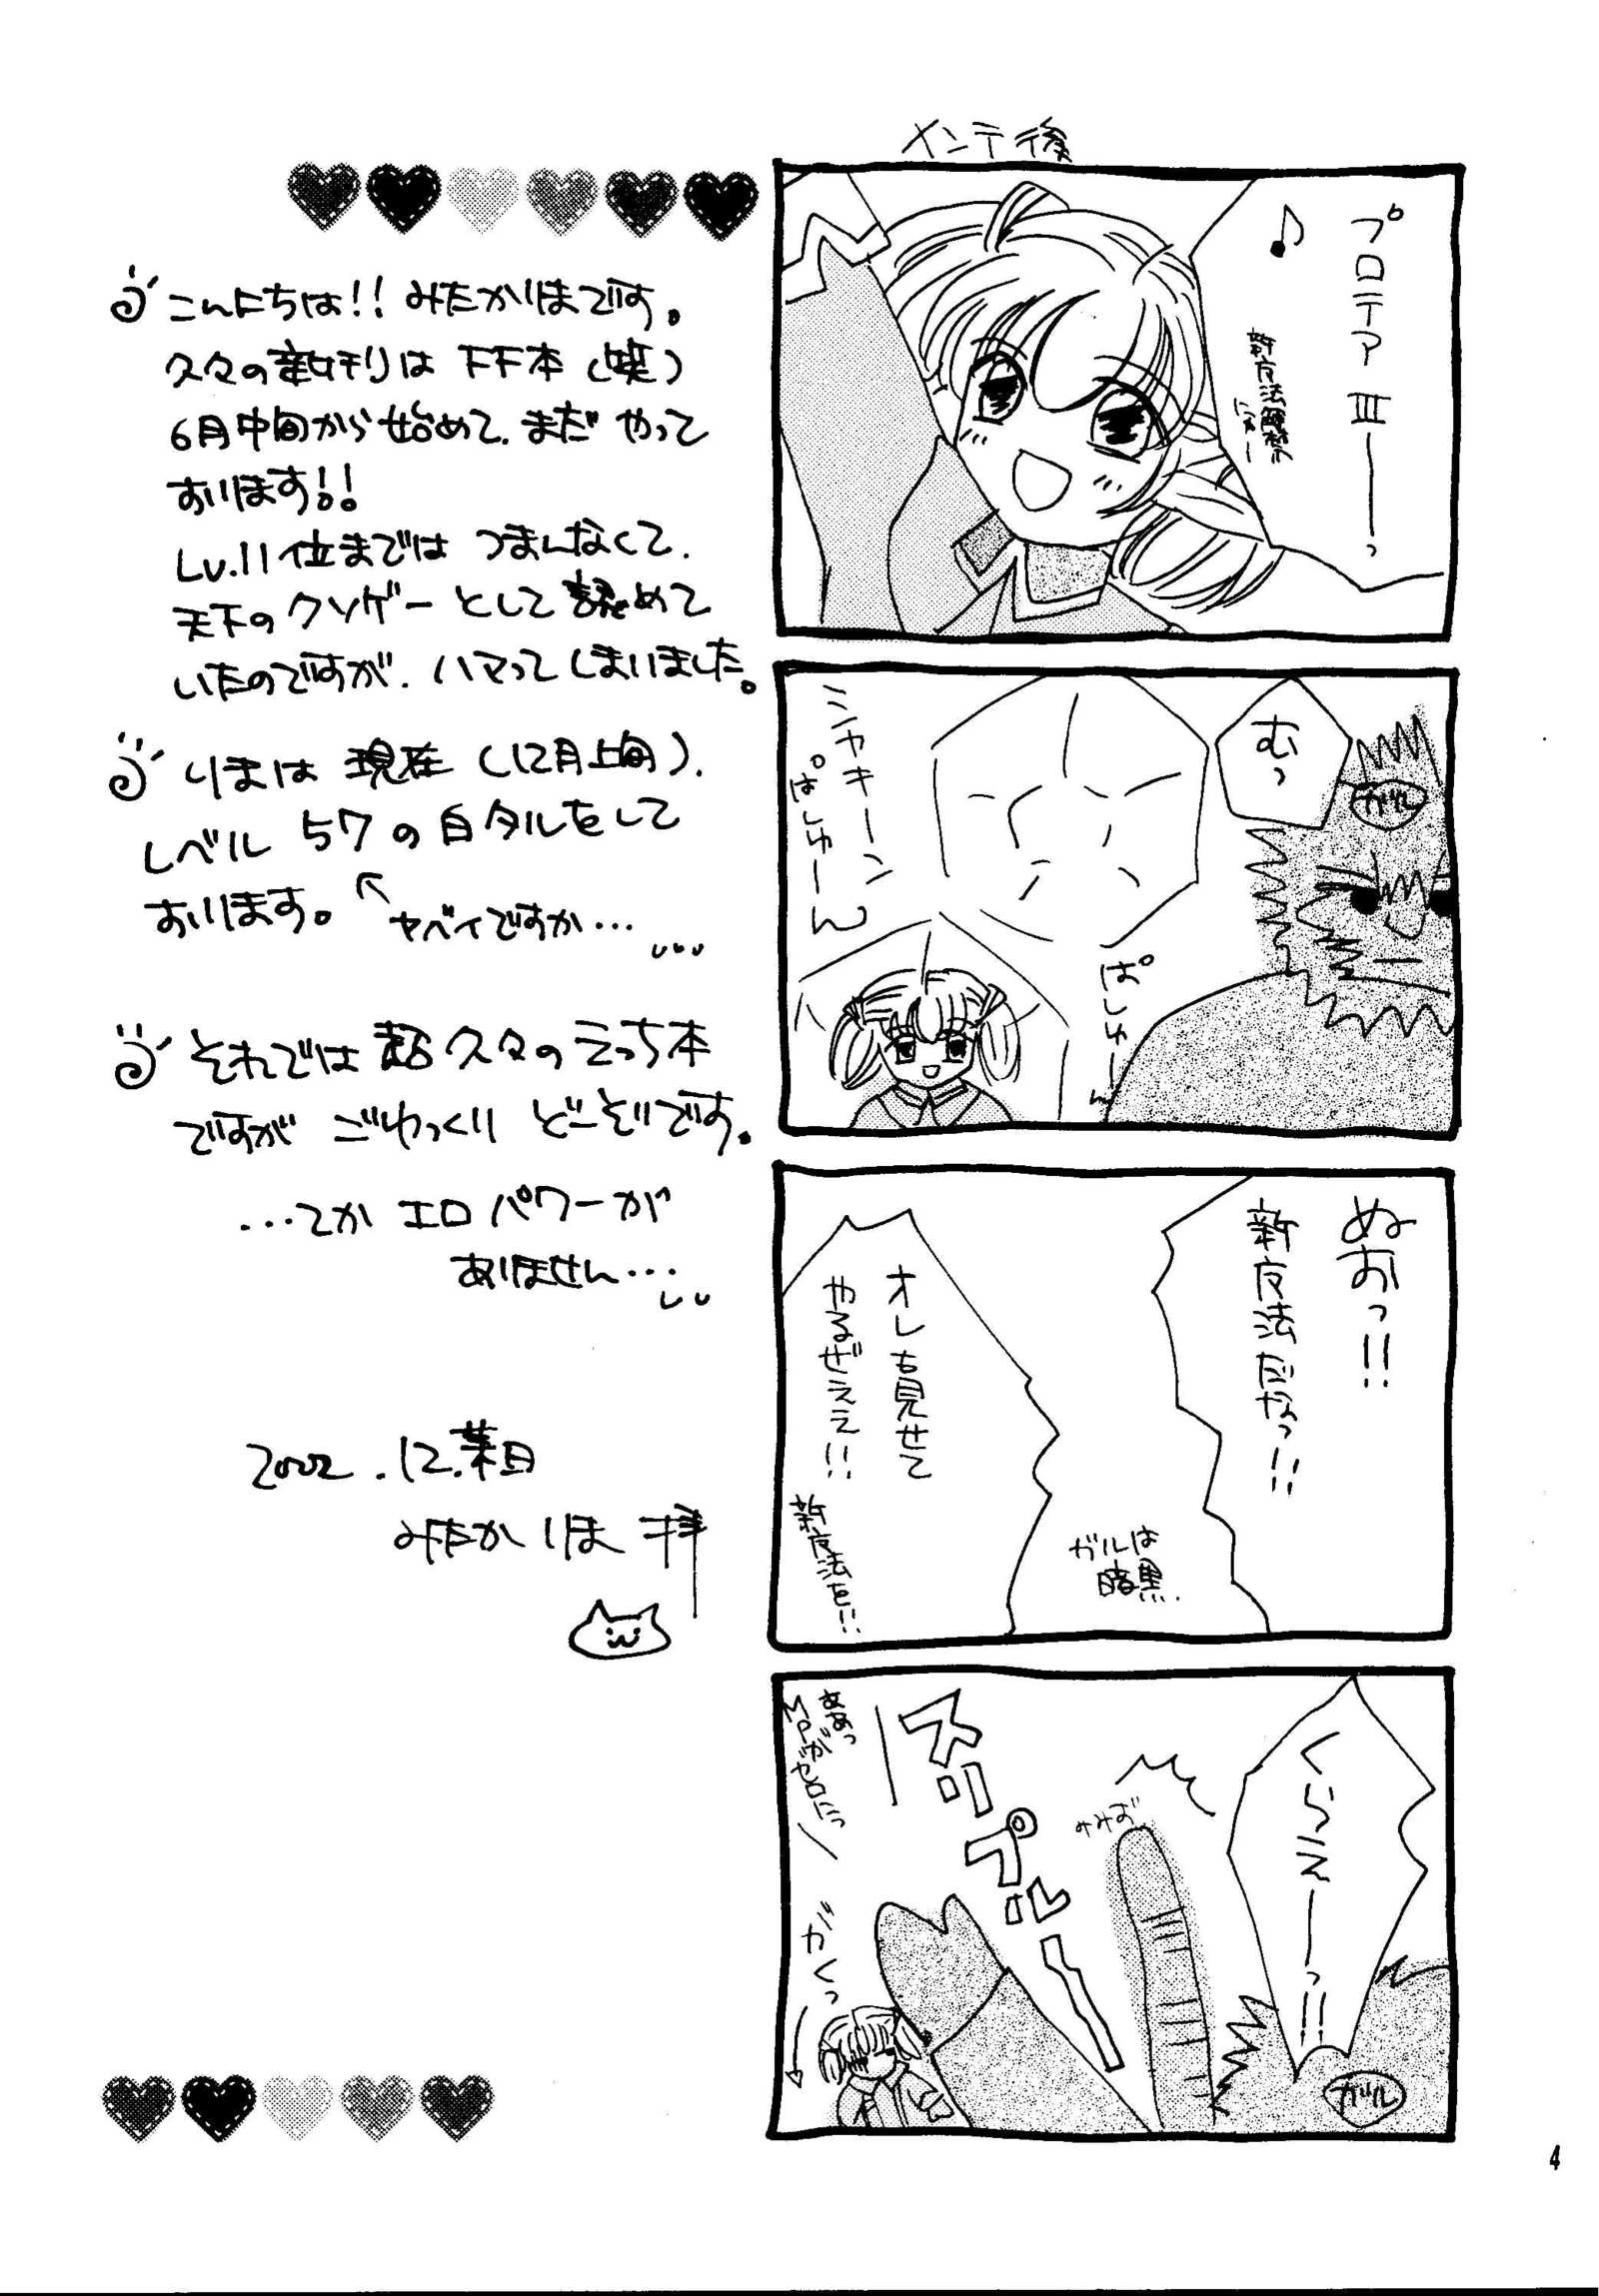 メンテ後
プロテアⅢーーっ
♪
新魔法解禁
にてー
むっ
ミシャキーン
ぱしゅーん
ぱしゅーん
ガル
ぬおっ!!
新魔法だなっ!!
ガルは
暗黒.
オレも見せて
やるぜぇぇ!!
新魔法を!!
くらえーーっ!!
ガル
スリプルー
ああっ
MPがゼロにっ
がくっ
こんにちは!!みたかりまです。
久々の新刊はFF本(笑)
6月中旬から始めて、まだやって
おります!!
Lv.11位までは つまんなくて、
天下のクソゲーとして認めて
いたのですが、ハマってしまいました。
りまは 現在(12月上旬)、
レベル 57の白タルをして
おります。
←ヤベイですか…
それでは超久々のえっち本
ですが ごゆっくり どーぞです。
…てか エロパワーが
ありません…
2002.12.某日
みたか りま 拝
4